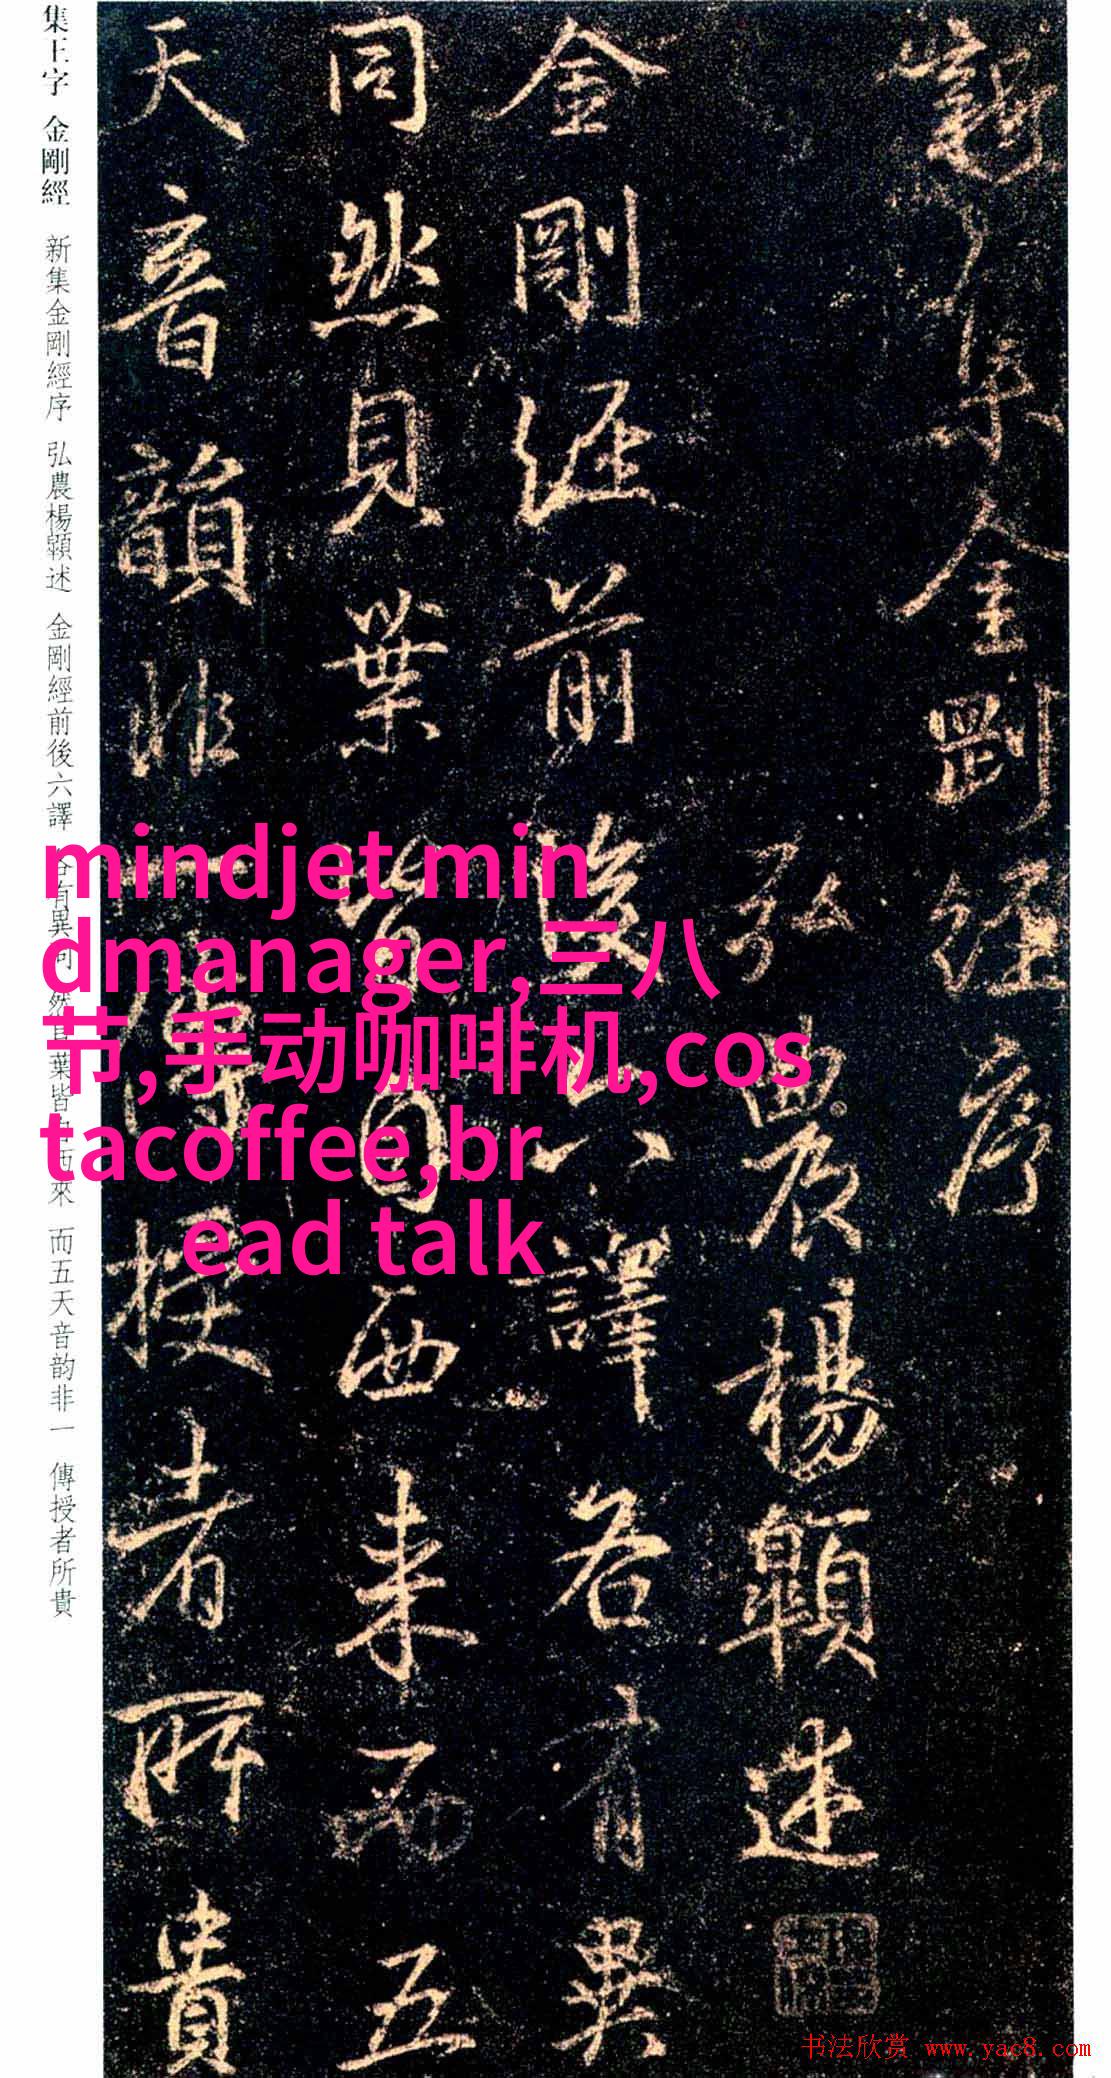 新集金剛經序
弘農楊述
金剛經前後六譯各有異
同然貝葉皆自西來而五
天音韻非一傳授者所貴
集王字 金剛經 新集金剛經序 弘農楊述 金剛經前後六譯 各有異同 然貝葉皆自西來 而五天音韵非一 傳授者所貴
mindjet min
dmanager,三八
节,手动咖啡机,cos
tacoffee,br
ead talk
书法欣赏 www.yac8.com